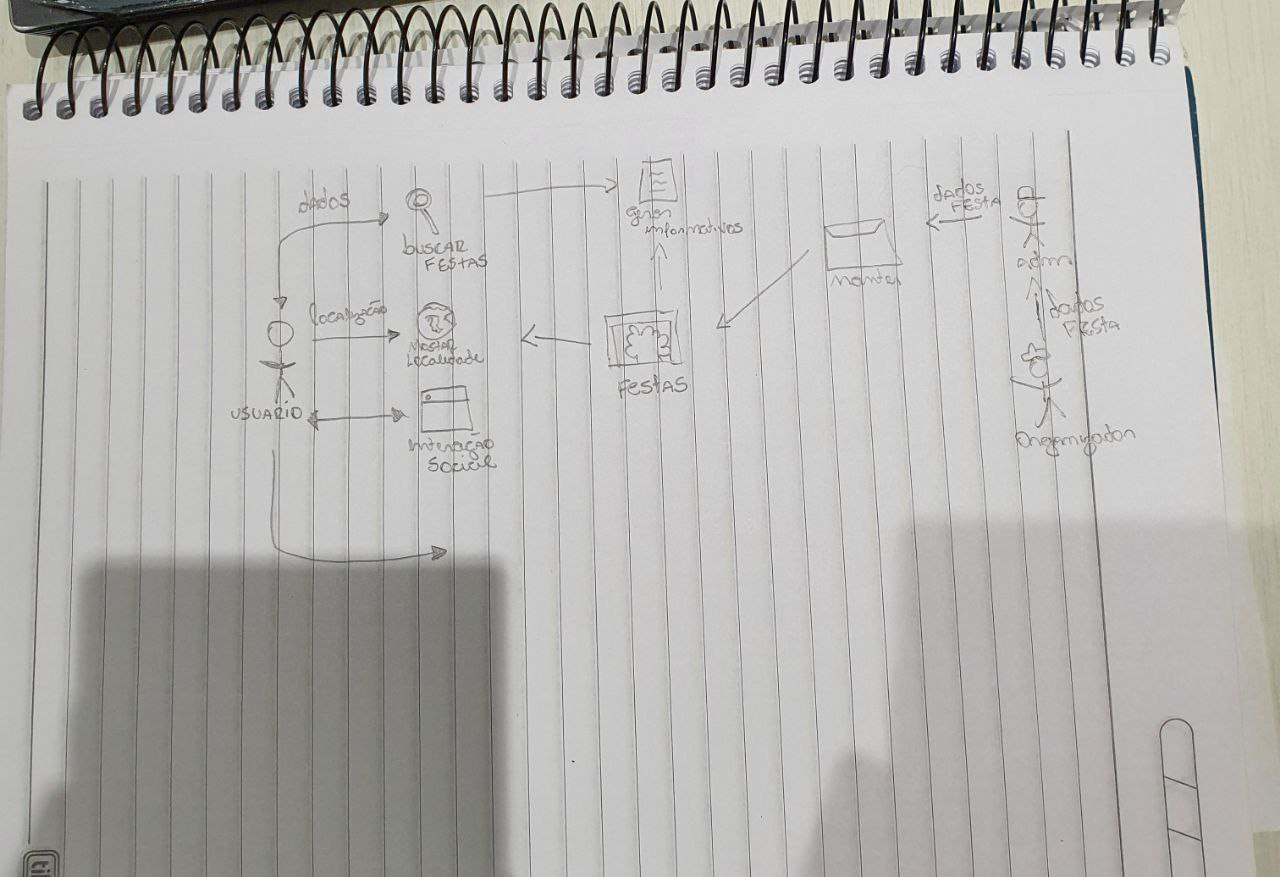 dados
buscar
festas
gerar
informativos
dados
festa
adm
manter
localização
mostar
localidade
dados
festa
festas
usuario
interação
social
organizador